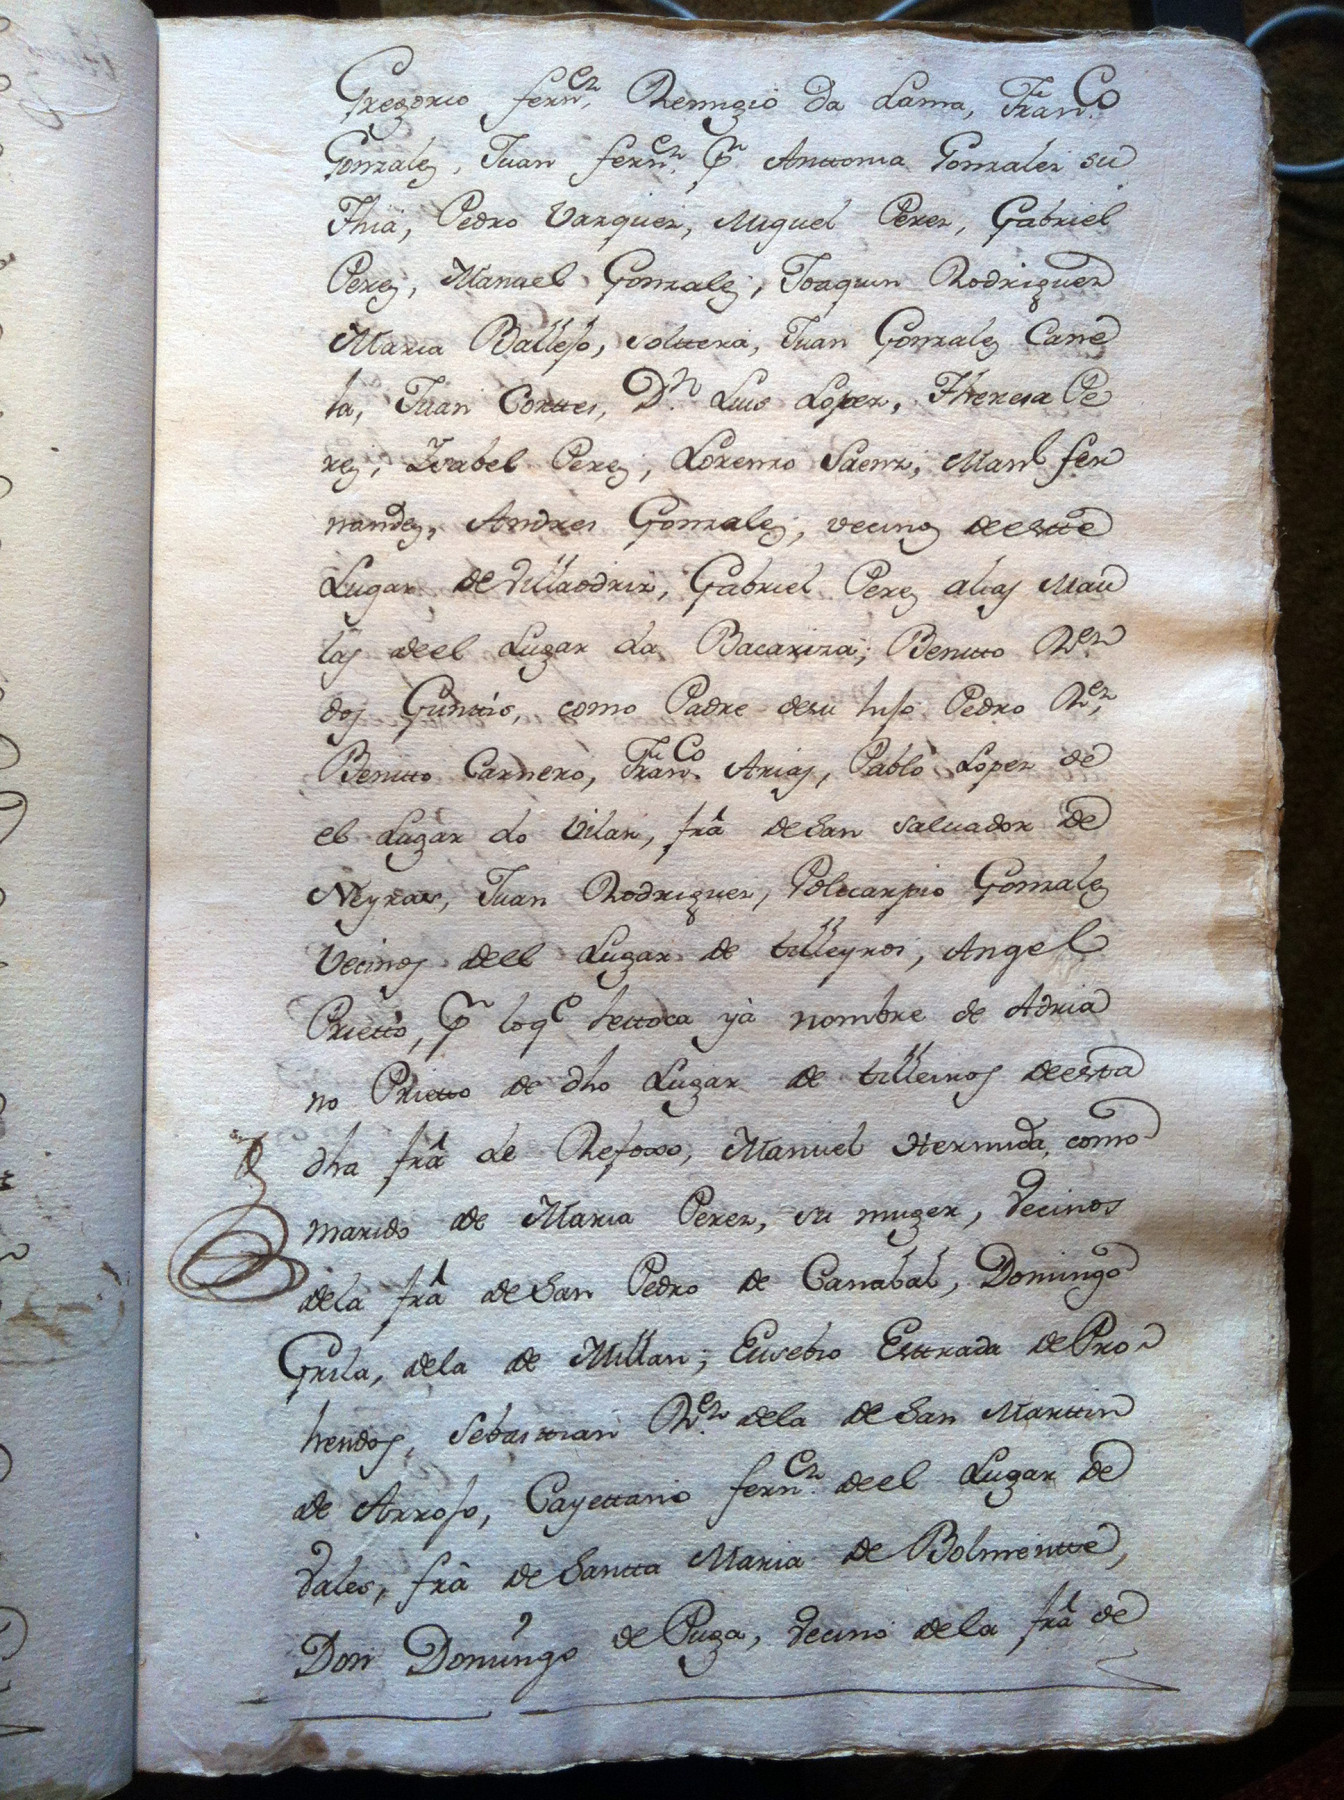 Gregorio fernez, Remigio da Lama, Franco
Gonzalez, Juan fernez pr Anttonia Gonzalez su
Thia, Pedro Vazquez, Miguel Perez, Gabriel
Perez, Manuel Gonzalez, Joaquin Rodriguez
Maria Ballejo, solttera, Juan Gonzalez Cane
la, Juan Corttes, Dn Luis Lopez, Theresa Pe
rez, Isabel Perez, Lorenzo Saenz, Manl fer
nandez, Andres Gonzalez, vecinos de estte
Lugar de Villaodriz, Gabriel Perez alias Mau
las de el Lugar da Bacariza; Benitto Rez
dos Gunttis, como Padre de su hijo Pedro Rez,
Benitto Carnero, Franco Arias, Pablo Lopez de
el Lugar do Vilar, fra de San Salvador de
Neyras, Juan Rodriguez, Policarpio Gonzalez
Vecinos de el Lugar de tilleyros, Angel
Prietto, pr lo qe le ttoca y à nombre de Adria
no Prietto de dho Lugar de tilleiros de esta
dha fra de Refoxo, Manuel Hermida, como
marido de Maria Perez, su muger, Vecinos
de la fra de San Pedro de Canabal, Domingo
Grila, de la de Millan; Eusebio Esttrada de Pro
hendos, Sebasttian Rez de la de San Marttin
de Arrojo, Cayettano fernez de el Lugar de
Vales, fra de Santta Maria de Bolmentte,
Don Domingo de Puga, Vecino de la fra de